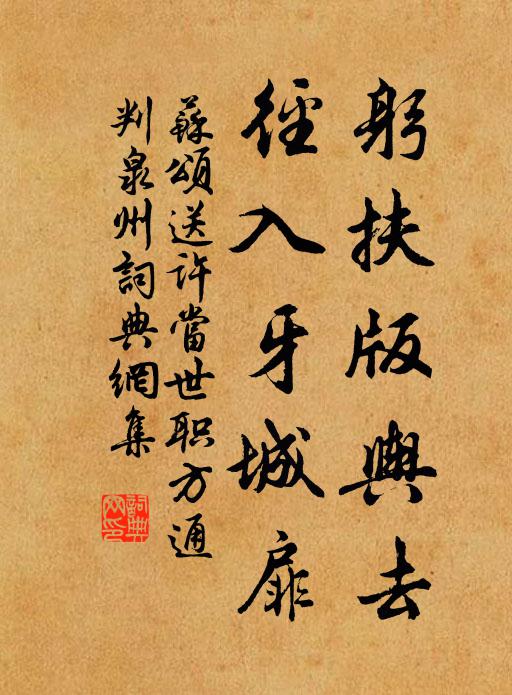 躬扶版輿去
徑入牙城扉
蘇頌送許當世职方通
判泉州詞典網集
詞典
网印